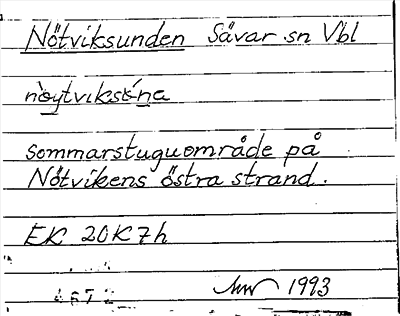 Nötviksunden Sävar sn Vbl
nòytviksén̲a
sommarstuguområde på
Nötvikens östra strand.
EK 20K7h
1993